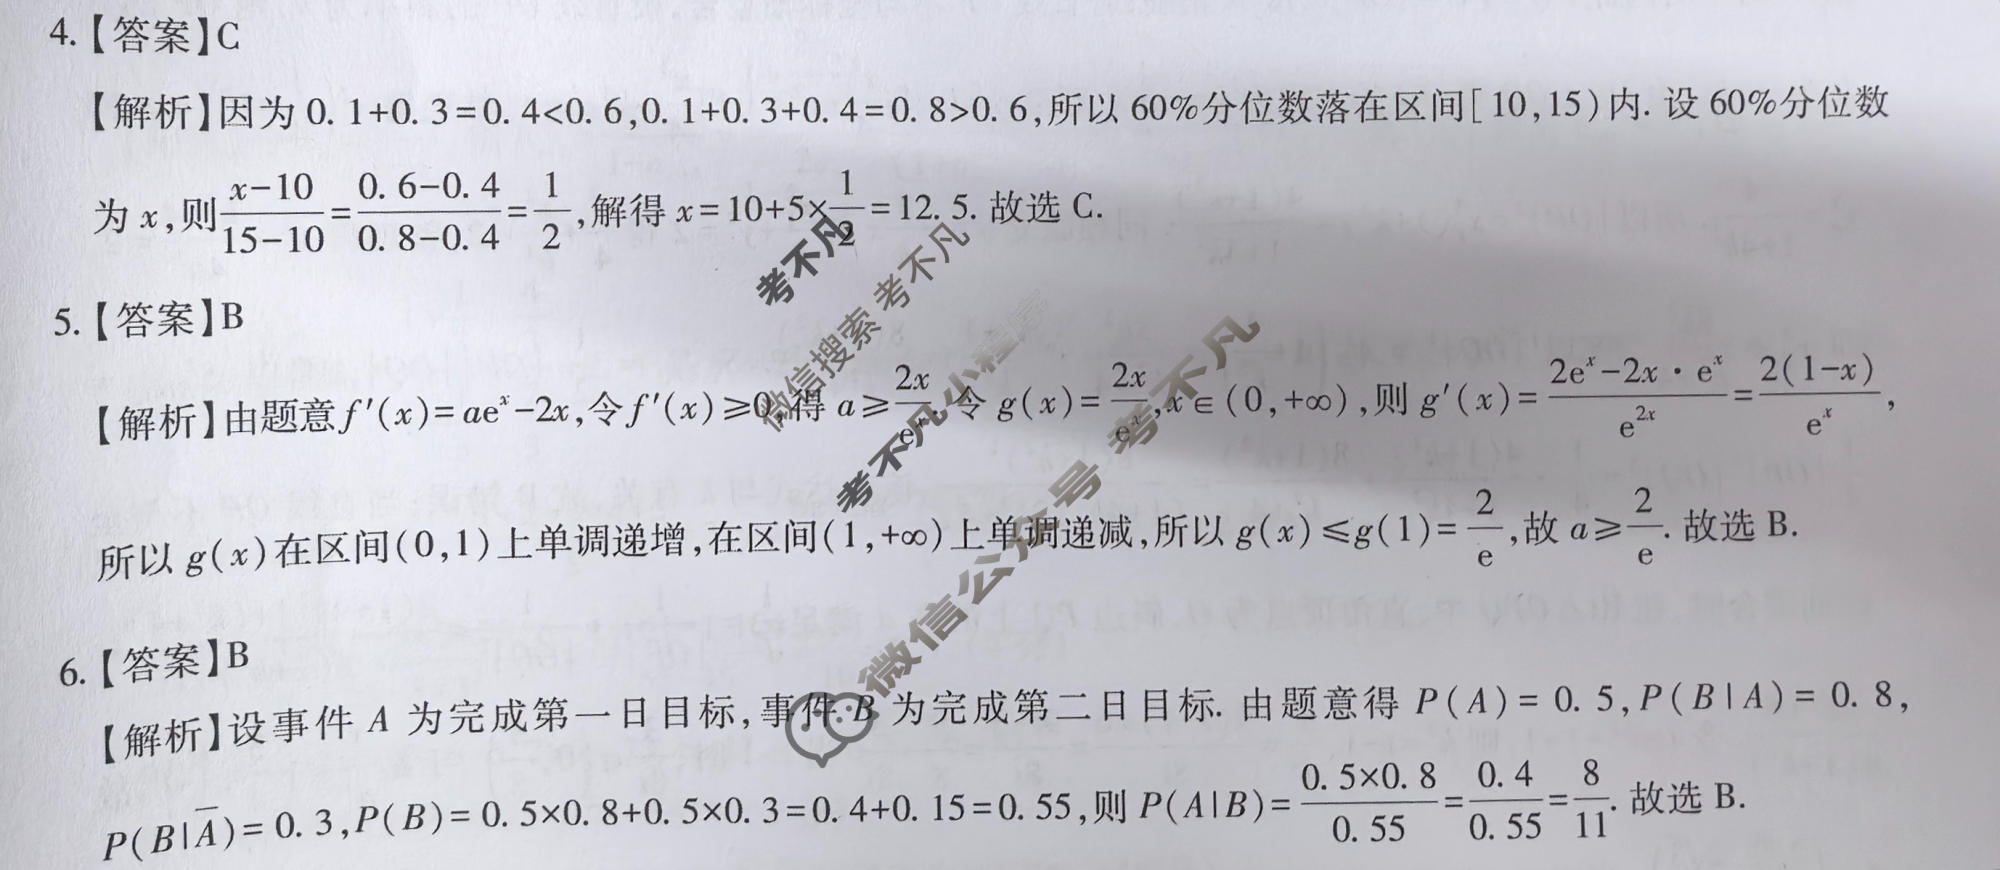 4.【答案】C
【解析】因为 0. 1+0. 3=0. 4<0. 6,0. 1+0. 3+0. 4=0. 8>0. 6,所以 60%分位数落在区间[10,15)内. 设 60%分位数
为 x,则 (x-10)/(15-10) = (0. 6-0. 4)/(0. 8-0. 4) = 1/2,解得 x=10+5×1/2=12. 5. 故选 C.
5.【答案】B
【解析】由题意 f′(x)=aeˣ-2x,令 f′(x)≥0,得 a≥2x/eˣ. 令 g(x)=2x/eˣ,x∈(0,+∞),则 g′(x)=(2eˣ-2x·eˣ)/e²ˣ=2(1-x)/eˣ,
所以 g(x)在区间(0,1)上单调递增,在区间(1,+∞)上单调递减,所以 g(x)≤g(1)=2/e,故 a≥2/e. 故选 B.
6.【答案】B
【解析】设事件 A 为完成第一日目标,事件 B 为完成第二日目标. 由题意得 P(A)=0. 5,P(B|A)=0. 8,
P(B|A̅)=0. 3,P(B)=0. 5×0. 8+0. 5×0. 3=0. 4+0. 15=0. 55,则 P(A|B)=(0. 5×0. 8)/0. 55=0. 4/0. 55=8/11. 故选 B.
考不凡
微信搜索 考不凡
考不凡小程序
微信公众号 考不凡